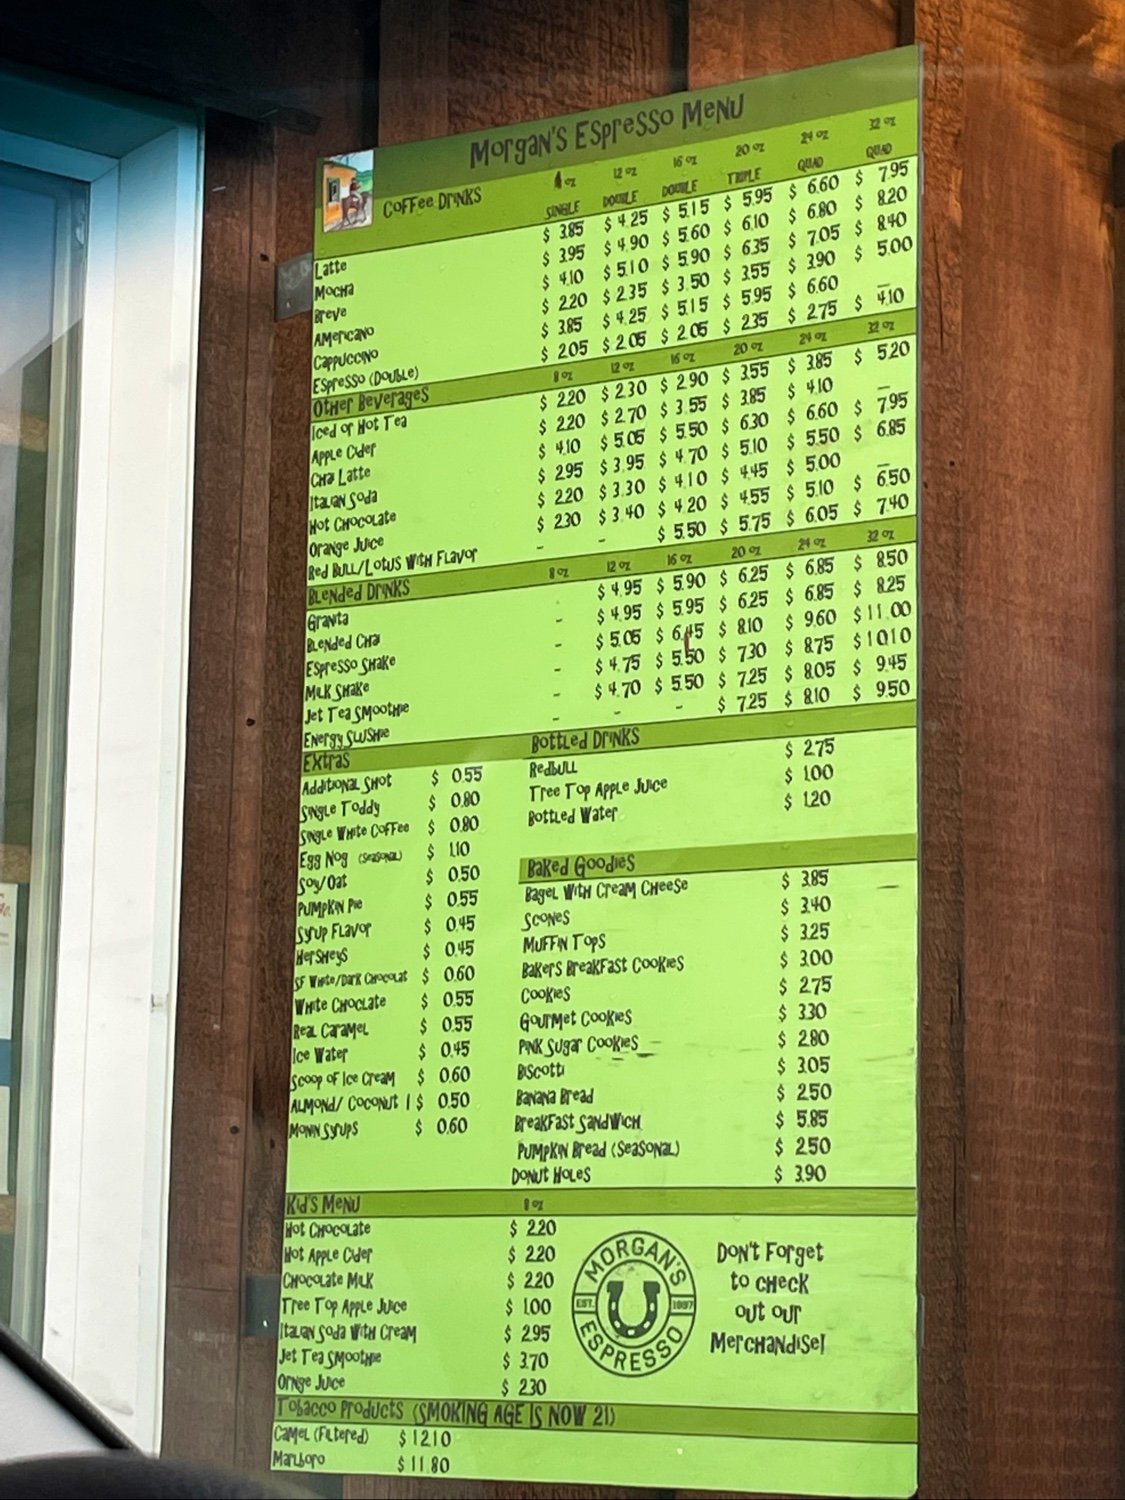 Morgan's Espresso Menu
oz 12 oz 16 oz 20 oz 24 oz 32 oz
Coffee Drinks SINGLE DOUBLE DOUBLE TRIPLE QUAD QUAD
Latte $ 3.85 $ 4.25 $ 5.15 $ 5.95 $ 6.60 $ 7.95
Mocha $ 3.95 $ 4.90 $ 5.60 $ 6.10 $ 6.80 $ 8.20
Breve $ 4.10 $ 5.10 $ 5.90 $ 6.35 $ 7.05 $ 8.40
Americano $ 2.20 $ 2.35 $ 3.50 $ 3.55 $ 3.90 $ 5.00
Cappuccino $ 3.85 $ 4.25 $ 5.15 $ 5.95 $ 6.60 –
Espresso (Double) $ 2.05 $ 2.05 $ 2.05 $ 2.35 $ 2.75 $ 4.10
Other Beverages 8 oz 12 oz 16 oz 20 oz 24 oz 32 oz
Iced or Hot Tea $ 2.20 $ 2.30 $ 2.90 $ 3.55 $ 3.85 $ 5.20
Apple Cider $ 2.20 $ 2.70 $ 3.55 $ 3.85 $ 4.10 –
Chai Latte $ 4.10 $ 5.05 $ 5.50 $ 6.30 $ 6.60 $ 7.95
Italian Soda $ 2.95 $ 3.95 $ 4.70 $ 5.10 $ 5.50 $ 6.85
Hot Chocolate $ 2.20 $ 3.30 $ 4.10 $ 4.45 $ 5.00 –
Orange Juice $ 2.30 $ 3.40 $ 4.20 $ 4.55 $ 5.10 $ 6.50
Red Bull/Lotus With Flavor - - $ 5.50 $ 5.75 $ 6.05 $ 7.40
Blended Drinks 8 oz 12 oz 16 oz 20 oz 24 oz 32 oz
Granita - $ 4.95 $ 5.90 $ 6.25 $ 6.85 $ 8.50
Blended Chai - $ 4.95 $ 5.95 $ 6.25 $ 6.85 $ 8.25
Espresso Shake - $ 5.05 $ 6.45 $ 8.10 $ 9.60 $ 11.00
Milk Shake - $ 4.75 $ 5.50 $ 7.30 $ 8.75 $ 10.10
Jet Tea Smoothie - $ 4.70 $ 5.50 $ 7.25 $ 8.05 $ 9.45
Energy Slushie - - - $ 7.25 $ 8.10 $ 9.50
Extras
Additional Shot $ 0.55
Single Toddy $ 0.80
Single White Coffee $ 0.80
Egg Nog (Seasonal) $ 1.10
Soy/Oat $ 0.50
Pumpkin Pie $ 0.55
Syrup Flavor $ 0.45
Hersheys $ 0.45
SF White/Dark Chocolat $ 0.60
White Choclate $ 0.55
Real Caramel $ 0.55
Ice Water $ 0.45
Scoop of Ice Cream $ 0.60
Almond/ Coconut $ 0.50
Monin Syrups $ 0.60
Bottled Drinks
Redbull $ 2.75
Tree Top Apple Juice $ 1.00
Bottled Water $ 1.20
Baked Goodies
Bagel With Cream Cheese $ 3.85
Scones $ 3.40
Muffin Tops $ 3.25
Bakers Breakfast Cookies $ 3.00
Cookies $ 2.75
Gourmet Cookies $ 3.30
Pink Sugar Cookies $ 2.80
Biscotti $ 3.05
Banana Bread $ 2.50
Breakfast Sandwich $ 5.85
Pumpkin Bread (Seasonal) $ 2.50
Donut Holes $ 3.90
Kid's Menu 8 oz
Hot Chocolate $ 2.20
Hot Apple Cider $ 2.20
Chocolate Milk $ 2.20
Tree Top Apple Juice $ 1.00
Italian Soda With Cream $ 2.95
Jet Tea Smoothie $ 3.70
Ornge Juice $ 2.30
MORGAN'S
EST. 1997
ESPRESSO
Don't Forget
to check
out our
Merchandise!
Tobacco Products (SMOKING AGE IS NOW 21)
Camel (Filtered) $ 12.10
Marlboro $ 11.80